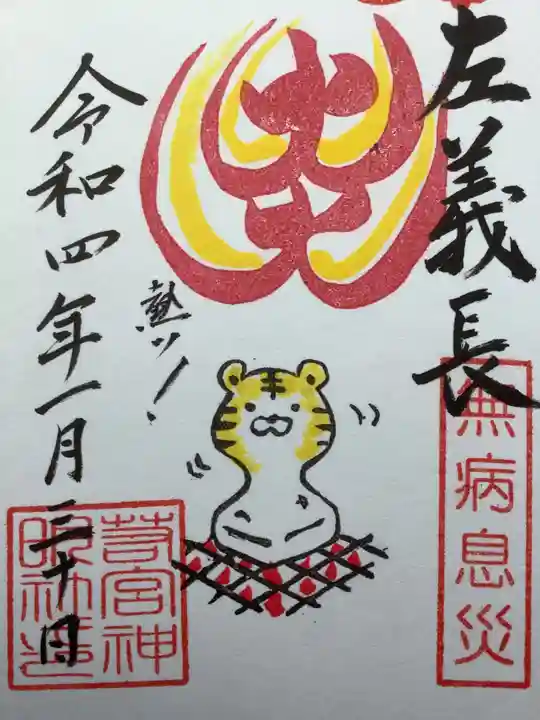 左義長
無病息災
熱ッ!
令和四年一月三十日
若宮神
明社